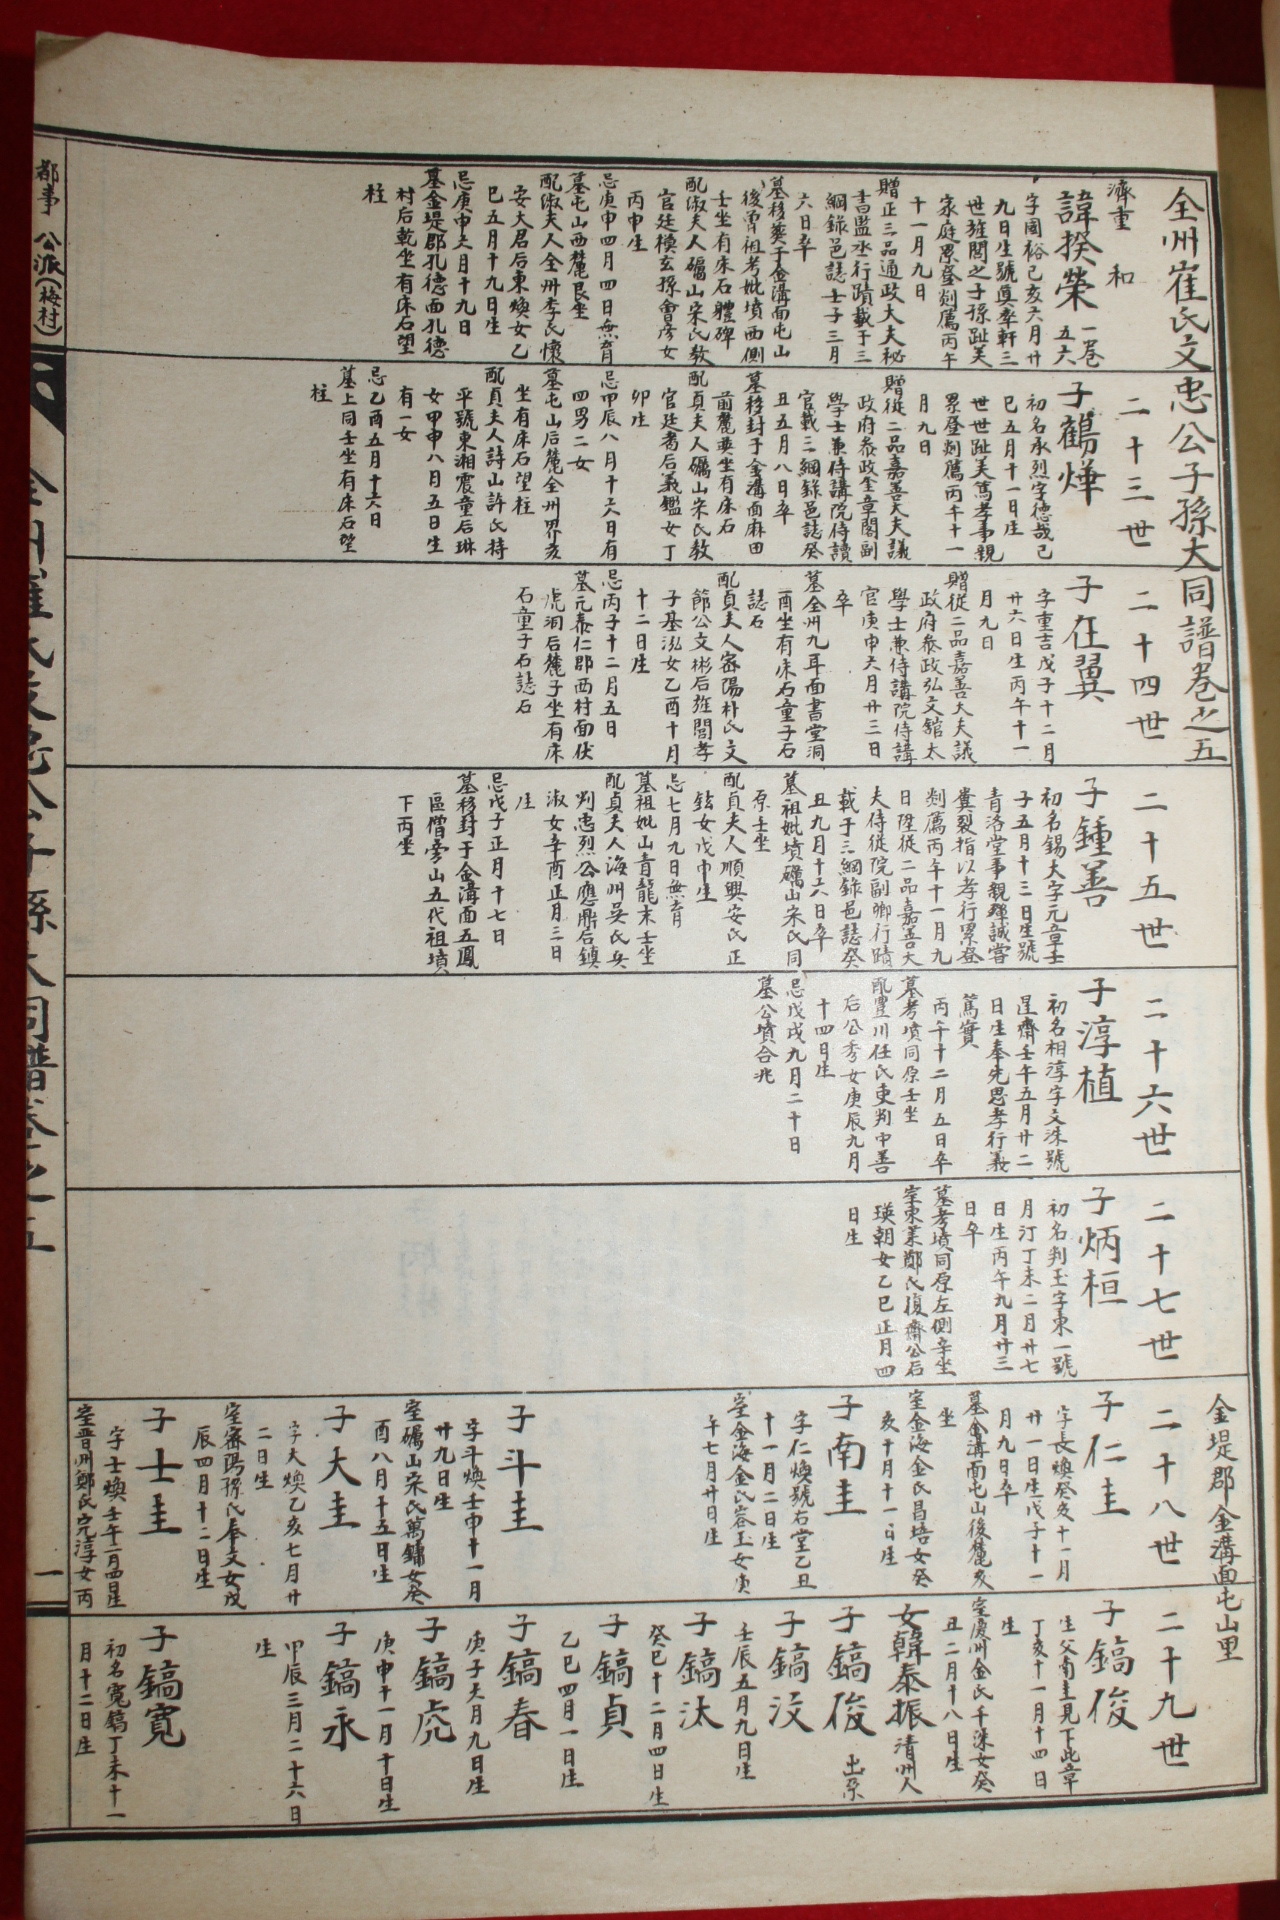 全州崔氏文忠公子孫大同譜卷之五
金堤郡金溝面屯山里
濟重 和
諱揆榮 一卷五六
字國裕己亥六月廿
九日生號莫牽軒三
世旌閭之子孫趾美
家庭累登剡薦丙午
十一月九日
贈正三品通政大夫秘
書監丞行蹟載于三
綱錄邑誌壬子三月
六日卒
墓移葬于金溝面屯山
後曾祖考妣墳西側
壬坐有床石體碑
配淑夫人礪山宋氏敎
官廷模玄孫會彦女
丙申生
忌庚申四月四日無育
墓屯山西麓艮坐
配淑夫人全州李氏懷
安大君后東煥女乙
巳五月十九日生
忌庚申六月十九日
墓金堤郡孔德面孔德
村后乾坐有床石望
柱
二十三世
子鶴燁
初名永烈字德哉己
巳五月十一日生
世世趾美篤孝事親
累登剡薦丙午十一
月九日
贈從二品嘉善大夫議
政府參政奎章閣副
學士兼侍講院侍讀
官載三綱錄邑誌癸
丑五月八日卒
墓移封于金溝面麻田
前麓巽坐有床石
配貞夫人礪山宋氏敎
官廷耆后義鑑女丁
卯生
忌甲辰八月十六日有
四男二女
墓屯山后麓全州界亥
坐有床石望柱
配貞夫人詩山許氏持
平號東湘震童后琳
女甲申八月五日生
有一女
忌乙酉五月十六日
墓上同壬坐有床石望
柱
二十四世
子在翼
字重吉戊子十二月
廿六日生丙午十一
月九日
贈從二品嘉善大夫議
政府參政弘文館太
學士兼侍講院侍講
官庚申六月廿三日
卒
墓全州九耳面書堂洞
酉坐有床石童子石
誌石
配貞夫人密陽朴氏文
節公文彬后旌閭孝
子基泓女乙酉十月
十二日生
忌丙子十二月五日
墓元泰仁郡西村面伏
虎洞后麓子坐有床
石童子石誌石
二十五世
子鍾善
初名錫大字元章壬
子五月十三日生號
青洛堂事親殫誠嘗
糞裂指以孝行累登
剡薦丙午十一月九
日陞從二品嘉善大
夫侍從院副卿行蹟
載于三綱錄邑誌癸
丑九月十六日卒
墓祖妣墳礪山宋氏同
原壬坐
配貞夫人順興安氏正
鉉女戊申生
忌七月九日無育
墓祖妣山青龍末壬坐
配貞夫人海州吳氏兵
判忠烈公應鼎后鎮
淑女辛酉正月三日
生
忌戊子正月十七日
墓移封于金溝面五鳳
區僧旁山五代祖墳
下丙坐
二十六世
子淳植
初名相淳字文洙號
星齋壬午五月廿二
日生奉先思孝行義
篤實
丙午十二月五日卒
墓考墳同原壬坐
配豊川任氏吏判中善
后公秀女庚辰九月
十四日生
忌戊戌九月二十日
墓公墳合兆
二十七世
子炳桓
初名判玉字東一號
月汀丁未二月廿七
日生丙午九月廿三
日卒
墓考墳同原左側辛坐
室東萊鄭氏復齋公后
瑛朝女乙巳正月四
日生
二十八世
子仁圭
字長煥癸亥十一月
廿一日生戊子十一
月九日卒
墓金溝面屯山後麓亥
坐
室金海金氏昌培女癸
亥十月十一日生
子南圭
字仁煥號右堂乙丑
十一月二日生
室金海金氏容玉女庚
午七月廿日生
子斗圭
字斗煥壬申十一月
廿九日生
室礪山宋氏萬鏞女癸
酉八月十五日生
子大圭
字大煥乙亥七月廿
二日生
室密陽孫氏奉文女戊
辰四月十二日生
子士圭
字士煥壬午一月四日生
室晋州鄭氏完淳女丙
二十九世
子鎬俊
生父南圭見下此章
丁亥十一月十四日
生
室慶州金氏千洙女癸
丑二月十八日生
女韓泰振 清州人
子鎬俊 出系
子鎬汶
壬辰五月九日生
子鎬汰
癸巳十二月四日生
子鎬貞
乙巳四月一日生
子鎬春
庚子六月九日生
子鎬虎
庚申十一月十日生
子鎬永
甲辰三月二十六日
生
子鎬寬
初名寬鎬丁未十一
月十二日生
都事公派(梅村)
全州崔氏文忠公子孫大同譜卷之五
一